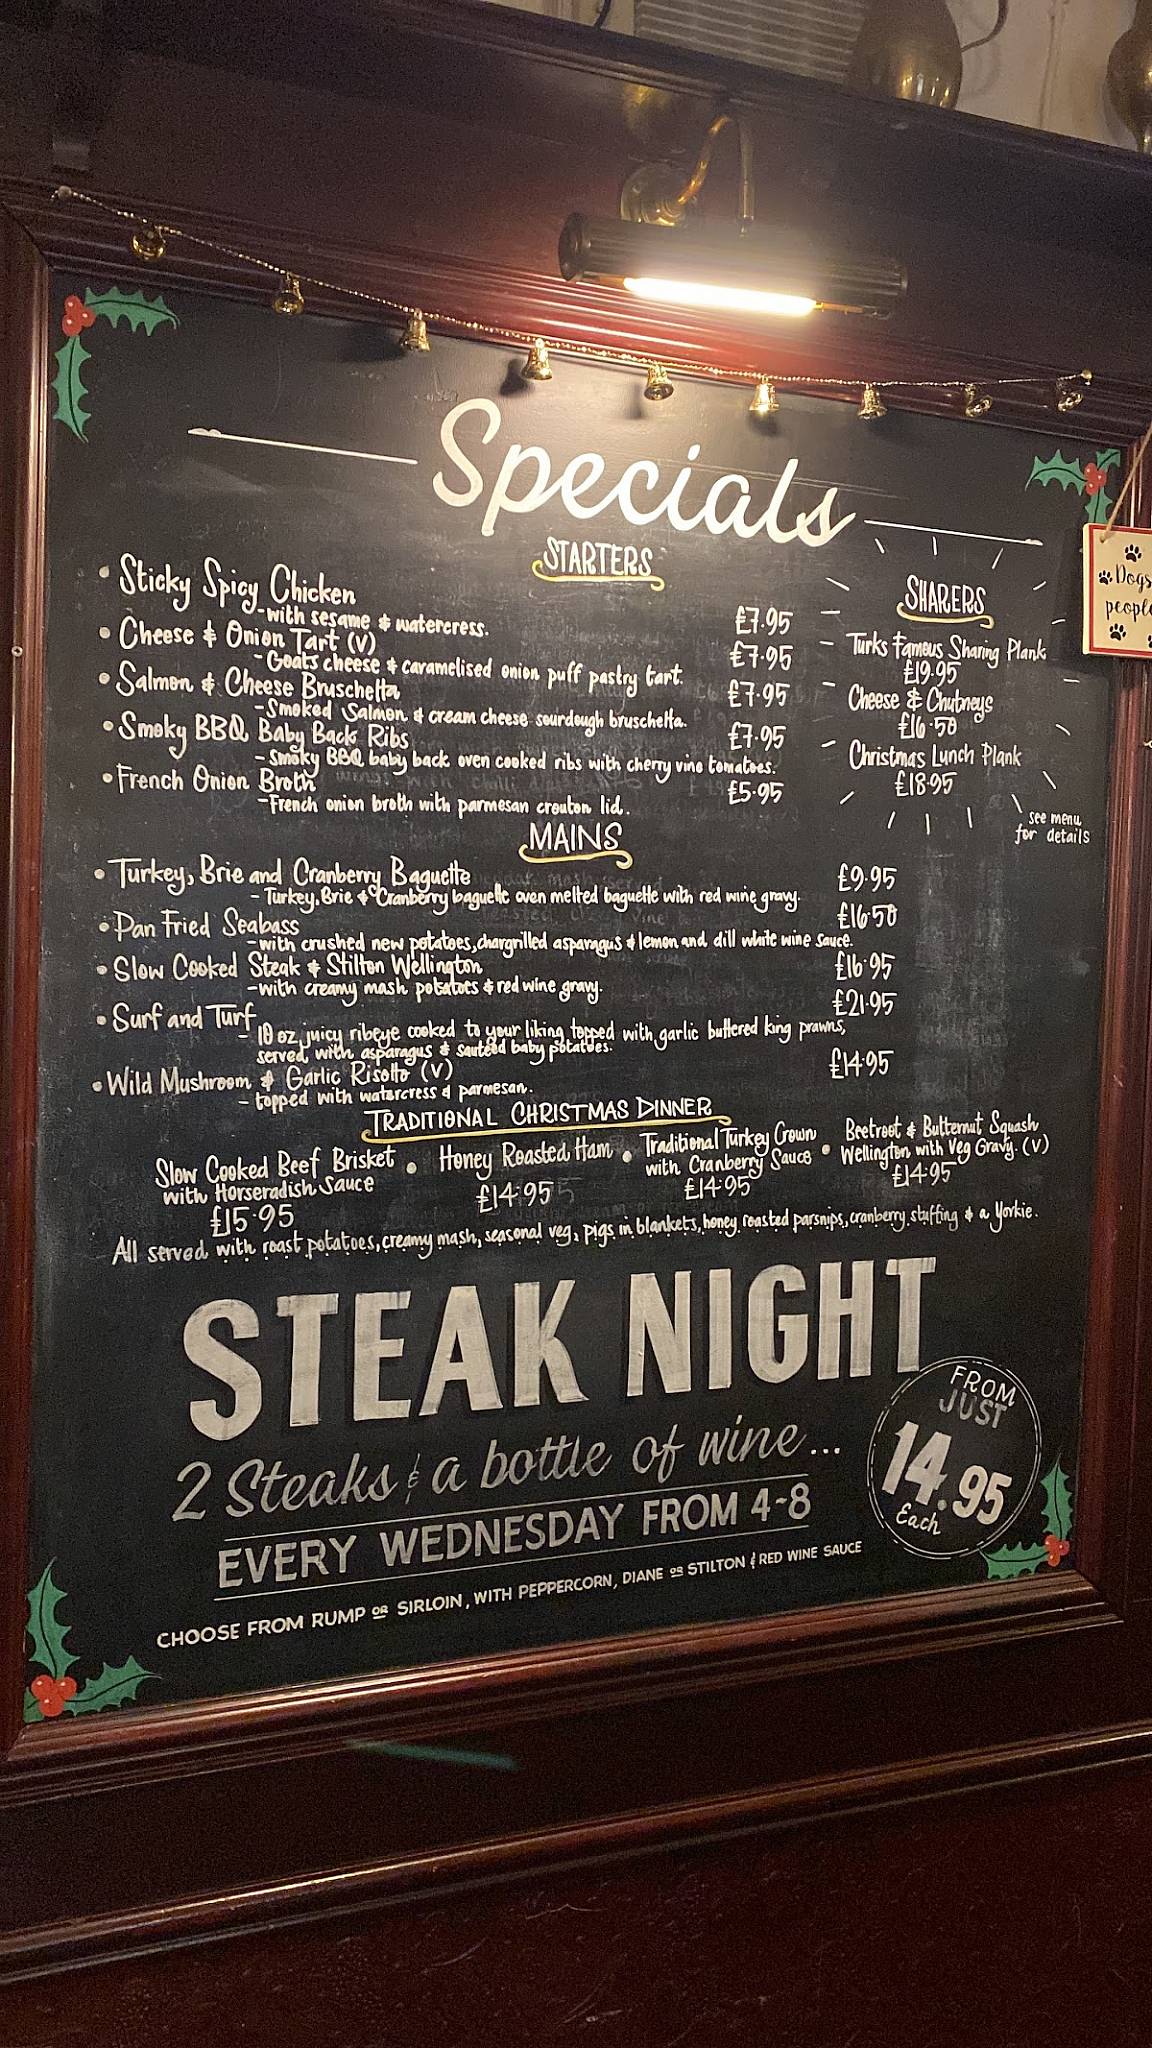 Specials
STARTERS
• Sticky Spicy Chicken £7.95
-with sesame & watercress.
• Cheese & Onion Tart (V) £7.95
-Goats cheese & caramelised onion puff pastry tart.
• Salmon & Cheese Bruschetta £7.95
-Smoked Salmon & cream cheese sourdough bruschetta.
• Smoky BBQ Baby Back Ribs £7.95
-Smoky BBQ baby back oven cooked ribs with cherry vine tomatoes.
• French Onion Broth £5.95
-French onion broth with parmesan crouton lid.
SHARERS
Turks Famous Sharing Plank
£19.95
Cheese & Chutneys
£16.50
Christmas Lunch Plank
£18.95
see menu
for details
MAINS
• Turkey, Brie and Cranberry Baguette £9.95
- Turkey, Brie & Cranberry baguette oven melted baguette with red wine gravy.
• Pan Fried Seabass £16.50
-with crushed new potatoes, chargrilled asparagus & lemon and dill white wine sauce.
• Slow Cooked Steak & Stilton Wellington £16.95
-with creamy mash potatoes & red wine gravy.
• Surf and Turf £21.95
- 10 oz juicy ribeye cooked to your liking topped with garlic buttered king prawns,
served with asparagus & sauteed baby potatoes.
• Wild Mushroom & Garlic Risotto (V) £14.95
- topped with watercress & parmesan.
TRADITIONAL CHRISTMAS DINNER
Slow Cooked Beef Brisket
with Horseradish Sauce
£15.95
• Honey Roasted Ham
£14.95
• Traditional Turkey Crown
with Cranberry Sauce
£14.95
• Beetroot & Butternut Squash
Wellington with Veg Gravy. (V)
£14.95
All served with roast potatoes, creamy mash, seasonal veg, pigs in blankets, honey roasted parsnips, cranberry stuffing & a Yorkie.
STEAK NIGHT
2 Steaks & a bottle of wine...
EVERY WEDNESDAY FROM 4-8
CHOOSE FROM RUMP OR SIRLOIN, WITH PEPPERCORN, DIANE OR STILTON & RED WINE SAUCE
FROM
JUST
14.95
Each
Dogs